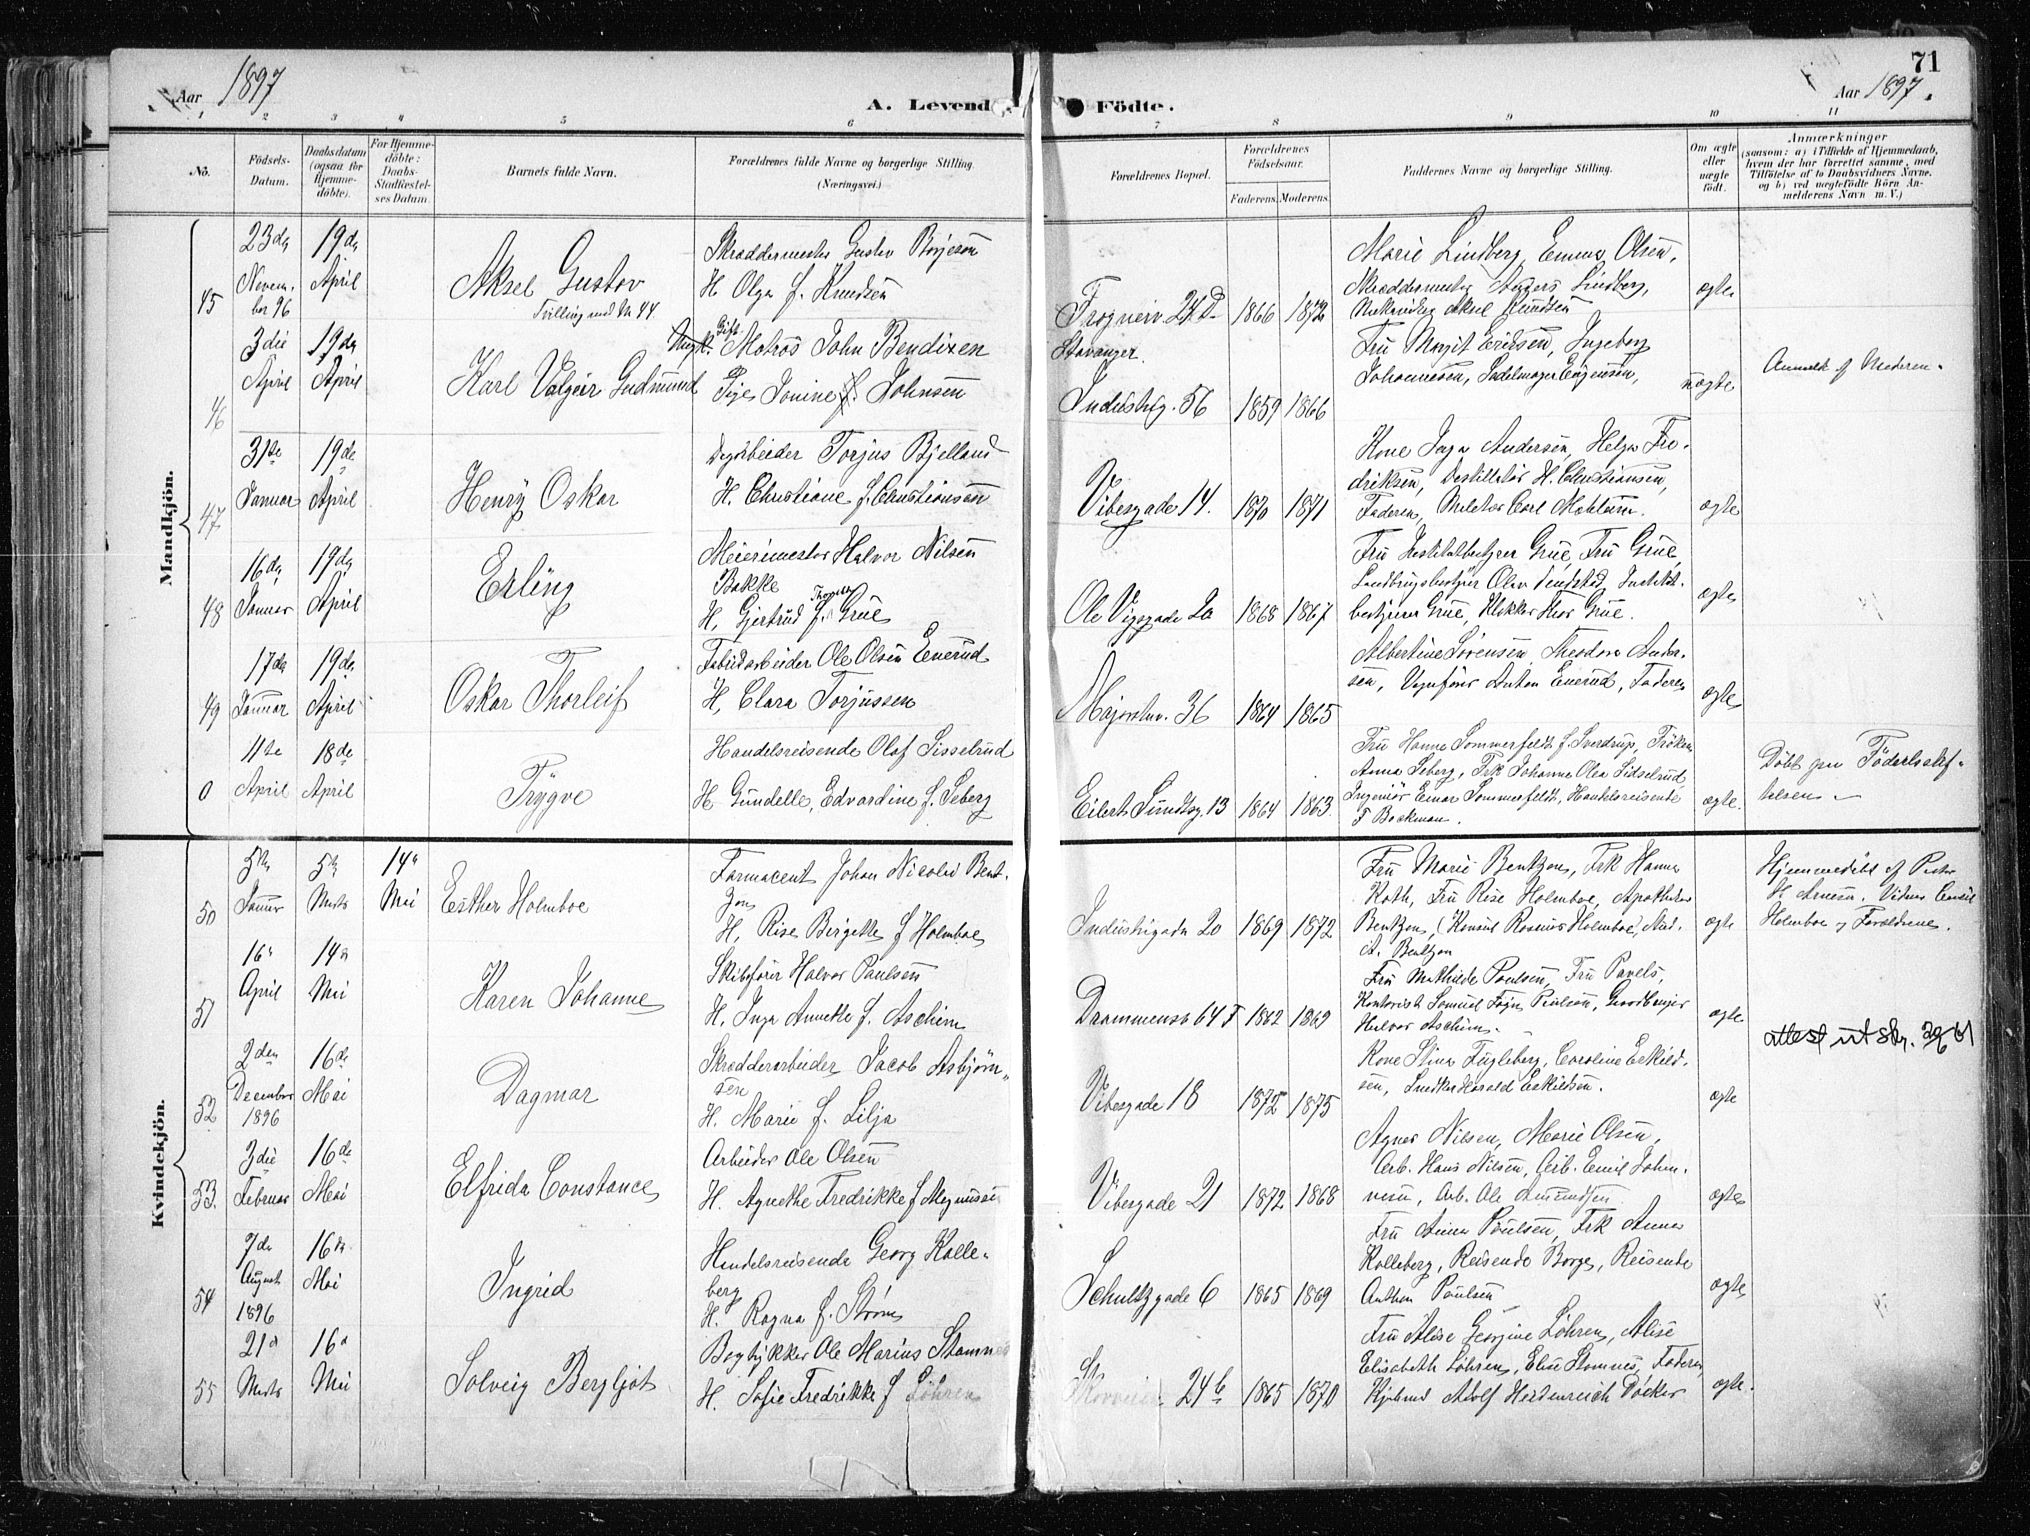 Aar 1897
A. Levende Födte.
71
Aar 1897.
1 2 3 4 5 6 7 8 9 10 11
No.
Födsels-
Datum.
Daabsdatum
(ogsaa for
Hjemme-
döbte).
For Hjemme-
döbte:
Daabs-
Stadfæstel-
ses Datum.
Barnets fulde Navn.
Forældrenes fulde Navne og borgerlige Stilling.
(Næringsvei.)
Forældrenes Bopæl.
Forældrenes
Födselsaar.
Faderens.
Moderens.
Faddernes Navne og borgerlige Stilling.
Om ægte
eller
uægte
födt.
Anmærkninger
(saasom: a) i Tilfælde af Hjemmedaab,
hvem der har forrettet samme, med
Tilföielse af to Daabsvidners Navne,
og b) ved uægtefödte Börn An-
melderens Navn m. V.)
Mandkjön.
45
23de
Novem-
ber 96
19de
April
Aksel Gustav
Tvilling med No 44
Skræddermester Gustav Börjeson
H. Olga f. Knudsen
Frognerv. 24 D
1866
1872
Marie Lindberg, Emma Olsen,
Skræddermester Anders Lindberg,
Aksel Knudsen
ægte
46
3die
April
19de
April
Karl Valgeir Gudmund
Ungk. Gift. Matros John Bendixen
Pige Jonine f. Johnsen
Stavanger.
Industrig. 56
1859
1866
Fru Margit Eriksen, Ingeborg
Johannesen, Sadelmager Jörgensen,
uægte
Anmeldt af Moderen.
47
31te
Januar
19de
April
Henry Oskar
Dagarbeider Torjus Bjelland
H. Christiane f. Christiansen
Vibesgade 14.
1870
1871
Kone Inga Andersen, Helga Fre-
driksen, Destillatör H. Christiansen,
Faderen, Carl Mohlum.
ægte
48
16de
Januar
19de
April
Erling
Meierimester Halvor Nilsen
Bakke
H. Gjertrud f. Grue
Ole Vigsgade 20
1868
1867
Fru Institutbestyrer Grue, Fru Grue,
Landbrugsbestyrer Olav Institut-
bestyrer Grue, Klokker Thor Grue.
ægte
49
17de
Januar
19de
April
Oskar Thorleif
Fabrikarbeider Ole Olsen Enerud
H. Clara Torjussen
Majorstuv. 36
1864
1865
Albertine Sörensen, Theodora Ander-
sen, Vognförer Anton Enerud, Faderen
ægte
0
11te
April
18de
April
Trygve
Handelsreisende Olaf Sisselrud
H. Gundelle, Edvardine f. Seberg
Eilert Sundtsg. 13
1864
1863.
Fru Hanna Sommerfeldt f. Sverdrup, Fröken
Anna Seberg, Frk Johanne Olea Sidselrud
Ingeniör Einar Sommerfeldt, Handelsreisende
F Backman.
ægte.
Döbt paa Födselsstif-
telsen.
Kvindekjön.
50
5te
Januar
5te
Marts
14de
Mai
Esther Holmboe
Farmaceut Johan Nicolai Bent-
zon
H. Rise Birgitte f Holmboe
Industrigaden 20
1869
1872
Fru Marie Bentzon, Frk Hanna
Koth, Fru Rise Holmboe, Apotheker
Bentzon, Konsul Rosenius Holmboe, Stud.
A. Bentzon
ægte
Hjemmedöbt af Pastor
H. Arnesen. Vidner Consul
Holmboe og Forældrene.
51
16de
April
14de
Mai
Karen Johanne
Skibsförer Halvor Paulsen
H. Inga Annette f. Aschim
Drammensv 64 F
1862
1869
Fru Mathilde Paulsen, Fru Pavels,
Kontorist Samuel Paulsen, Grosshandler
Halvor Aschim.
ægte
attest utskr. 29/6 61
52
2den
December
1896
16de
Mai
Dagmar
Skrædderarbeider Jacob Asbjörn-
sen
H. Marie f. Lilja
Vibesgade 18
1872
1875
Kone Stina Fugleberg, Caroline Eskild-
sen, Snedker Harald Eskildsen.
ægte
53.
3die
Februar
16de
Mai
Elfrida Constance
Arbeider Ole Olsen
H. Agnethe Fredrikke f Magnussen
Vibesgade 21
1872
1868
Agnes Nilsen, Marie Olsen,
Arb. Hans Nilsen, Arb. Emil Johan-
nesen, Arb. Ole Amundsen.
ægte
54
7de
August
1896
16de
Mai
Ingrid
Handelsreisende Georg Kolle-
berg
H. Ragna f. Ström
Schultzgade 6
1865
1869
Fru Anna Poulsen, Frk Anna
Kolleberg, Reisende Borge, Reisende
Anthon Poulsen
ægte
55
21de
Marts
16de
Mai
Solveig Bergljot
Bogtykker Ole Marius Stamnes
H. Sofie Fredrikke f Löhren
24 b
1865
1870
Fru Alise Georgine Löhren, Alise
Elisabeth Löhren, Elise Stamnes, Faderen,
Kjöbmd Adolf Heidenreich Döcker
ægte.